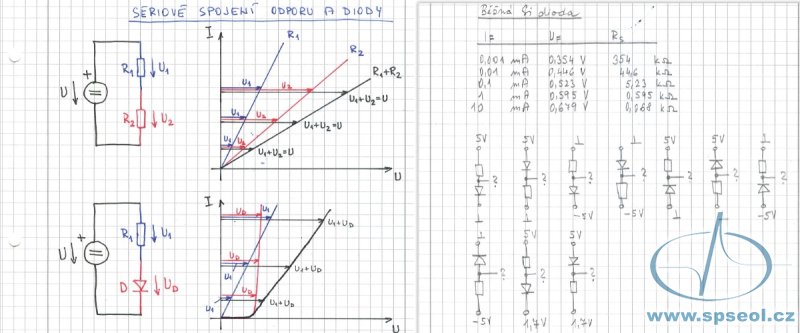 SÉRIOVÉ SPOJENÍ ODPORU A DIODY
I
R1
R2
R1+R2
U1
U2
U1+U2=U
U1
U2
U1+U2=U
U1
U2
U1+U2=U
U
U
+
R1
U1
R2
U2
I
UD
U1
U1+UD
UD
U1
U1+UD
UD
U1
U1+UD
U
U
+
R1
U1
D
UD
Běžná Si dioda
IF UF RS
0,001 mA 0,354 V 354 kΩ
0,01 mA 0,446 V 44,6 kΩ
0,1 mA 0,523 V 5,23 kΩ
1 mA 0,595 V 0,595 kΩ
10 mA 0,679 V 0,068 kΩ
5V 5V ⊥ ⊥ 5V 5V ⊥
? ? ? ? ? ? ?
⊥ ⊥ -5V -5V ⊥ ⊥ -5V
⊥ 5V 5V
? ? ?
-5V 1,7V 1,7V
www.spseol.cz